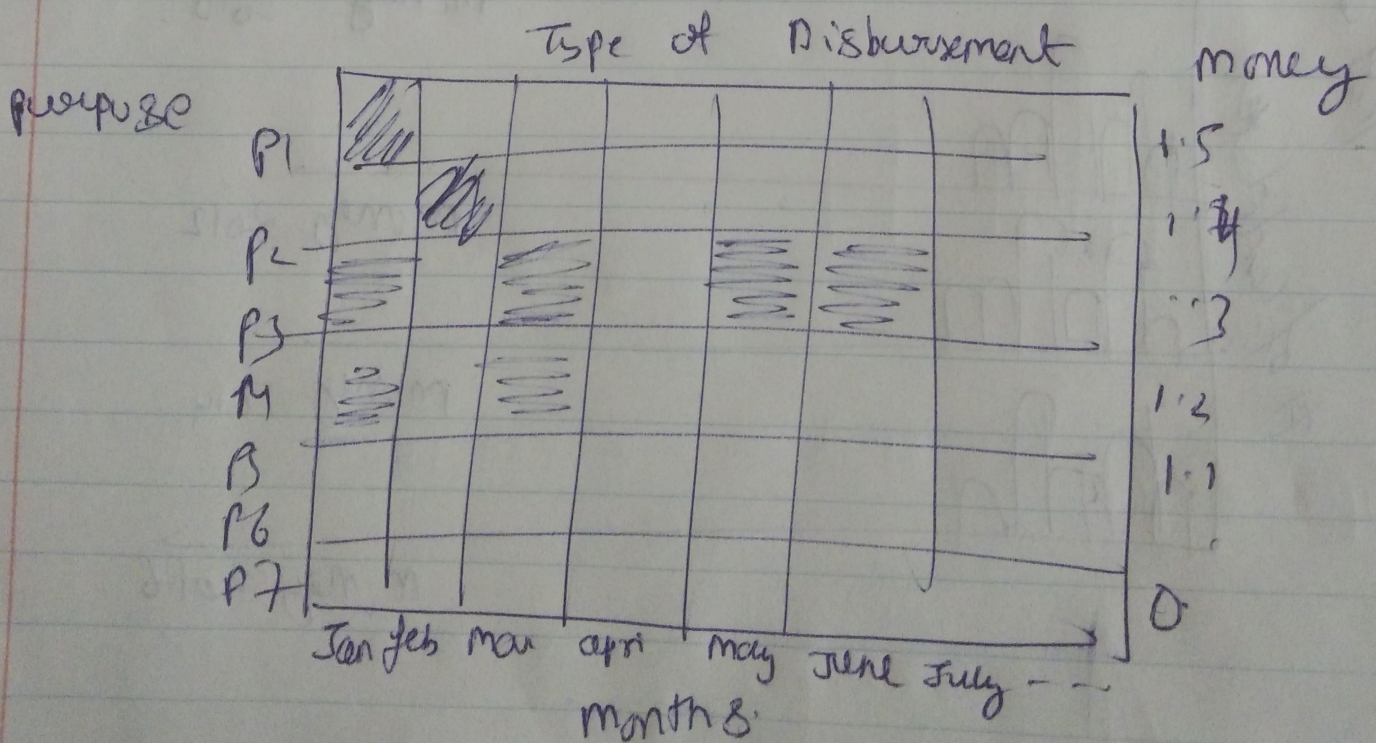 Type of Disbursement
money
purpose
P1
1.5
P2
1.4
P3
3
P4
1.2
P5
1.1
P6
P7
0
Jan feb mar apri may June July - - -
months.